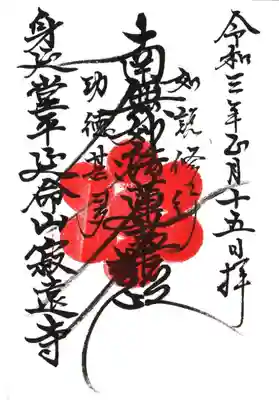 令和三年正月十五日拝
如説修行
南無妙法蓮華経
功徳甚多
身延堂平延命山寂遠寺